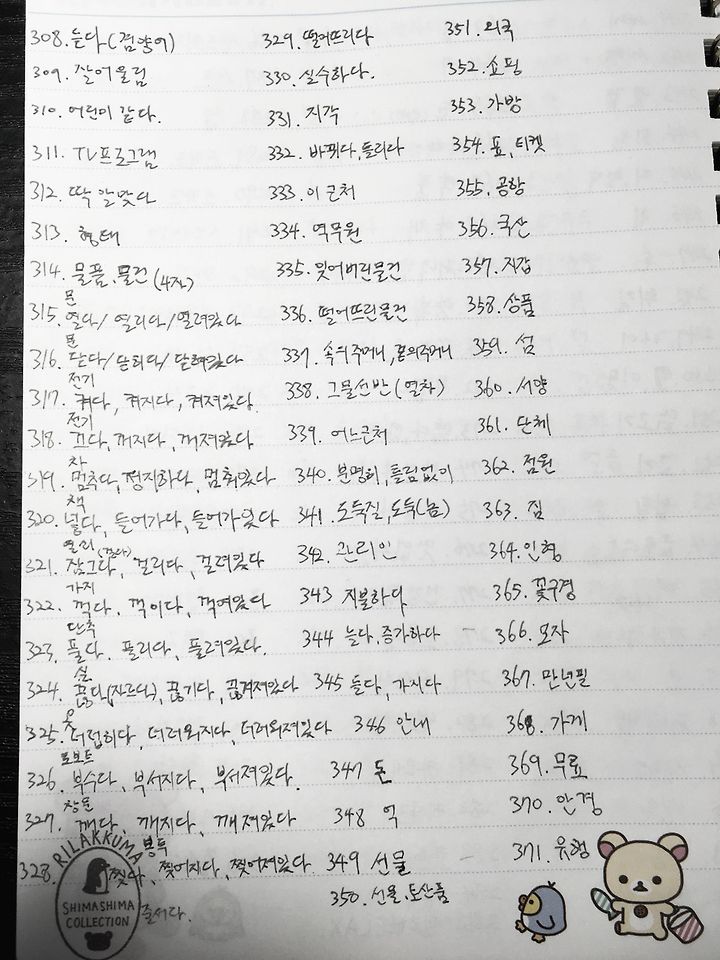 308. 늗다 (겸양어)
309. 잘어울림
310. 어린이 같다.
311. TV프로그램
312. 딱 알맞다
313. 형태
314. 물품, 물건 (4자)
문
315. 열다/ 열리다/ 열려있다
문
316. 닫다/ 닫히다/ 닫혀있다
전기
317. 켜다, 켜지다, 켜져있다.
전기
318. 끄다, 꺼지다, 꺼져있다
차
319. 멈추다, 정지하다, 멈춰있다
책
320. 넣다, 들어가다, 들어가있다
열쇠
321. 잠그다, 걸리다, 걸려있다
가지
322. 꺽다, 꺽이다, 꺽여있다
단추
323. 풀다. 풀리다, 풀려있다.
실
324. 끊다(자르다), 끊기다, 끊겨져있다
옷
325. 더럽히다, 더러워지다, 더러워져있다
로보트
326. 부수다, 부서지다, 부서져있다.
창문
327. 깨다, 깨지다, 깨져있다
봉투
328. 찢다, 찢어지다, 찢어져있다
줄서다.
RILAKKUMA
SHIMASHIMA
COLLECTION
329. 떨어뜨리다
330. 실수하다.
331. 지각
332. 바뀌다, 틀리다
333. 이 근처
334. 역무원
335. 잊어버린물건
336. 떨어뜨린물건
337. 속의주머니,
338. 그물선반 (열차)
339. 어느근처
340. 분명히, 틀림없이
341. 도둑질, 도둑(놈)
342. 관리인
343 지불하다
344 늘다, 증가하다
345 들다, 가지다
346 안내
347 돈
348 억
349 선물
350. 선물, 토산품
351. 외국
352. 쇼핑
353. 가방
354. 표, 티켓
355. 공항
356. 국산
357. 지갑
358. 상품
359. 섬
360. 서양
361. 단체
362. 점원
363. 짐
364. 인형
365. 꽃구경
366. 모자
367. 만년필
368. 가게
369. 무료
370. 안경
371. 유행